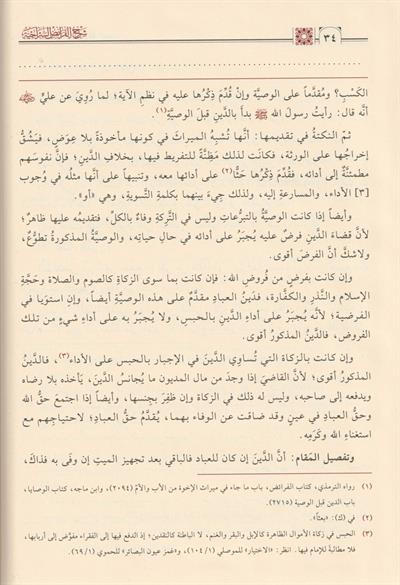 ٣٤
شرح الفرائض السراجية
الكَسْبِ؟ ومُقدَّماً على الوصيَّة وإنْ قُدِّمَ ذِكْرُها عليه في نظمِ الآية؛ لما رُوِيَ عن عليٍّ رضي الله عنه
أنَّه قال: رأيتُ رسولَ الله ﷺ بدأ بالدَّينِ قبلَ الوصيَّةِ(١).
ثمّ النكتةُ في تقديمِها: أنَّها تُشبِهُ الميراثَ في كونها مأخوذةً بلا عِوَضٍ، فيَشُقُّ
إخراجُها على الورثة، فكانَت لذلك مَظِنَّةً للتفريط فيها، بخلافِ الدَّينِ؛ فإنَّ نفوسَهم
مطمئنَّةٌ إلى أدائه، فقُدِّمَ ذِكْرُها حَثًّا(٢) على أدائها معه، وتنبيهاً على أنَّها مثلُه في وُجوبِ
[٣] الأداء، والمسارعةِ إليه، ولذلك جِيءَ بينهما بكلمةِ التَّسوية، وهي «أو».
وأيضاً إذا كانت الوصيَّةُ بالتبرُّعات وليس في التَّرِكة وفاءٌ بالكلِّ، فتقديمُه عليها ظاهرٌ؛
لأنَّ قضاءَ الدَّينِ فرضٌ عليه يُجبَرُ على أدائه في حالِ حياتِه، والوصيَّةُ المذكورةُ تطوُّعٌ،
ولاشكَّ أنَّ الفرضَ أقوى.
وإن كانت بفرضٍ من فُروضِ الله: فإن كانت بما سوى الزكاةِ كالصومِ والصلاة وحَجَّةِ
الإسلام والنَّذرِ والكفَّارة، فدَينُ العبادِ مقدَّمٌ على هذه الوصيَّةِ أيضاً، وإنِ استوَيا في
الفرضية؛ لأنَّه يُجبَرُ على أداءِ الدَّينِ بالحبس، ولا يُجبَرُ به على أداءِ شيءٍ من تلك
الفروض، فالدَّينُ المذكورُ أقوى.
وإن كانت بالزكاة التي تُساوي الدَّينَ في الإجبارِ بالحبس على الأداء(٣)، فالدَّينُ
المذكورُ أقوى؛ لأنَّ القاضيَ إذا وجدَ من مال المديون ما يُجانسُ الدَّينَ، يأخذه بلا رضاه
ويدفعه إلى صاحبه، وليس له ذلك في الزكاة وإن ظفِرَ بجنسها، وأيضاً إذا اجتمعَ حقُّ الله
وحقُّ العباد في عينٍ وقد ضاقت عن الوفاء بهما، يُقدَّمُ حقُّ العباد؛ لاحتياجِهم مع
استغناءِ الله وكَرَمِه.
وتفصيل المقام: أنَّ الدَّينَ إن كان للعباد فالباقي بعد تجهيزِ الميتِ إن وفَى به فذاك،
(١) رواه الترمذي، كتاب الفرائض، باب ما جاء في ميراث الإخوة من الأب والأمّ (٢٠٩٤)، وابن ماجه، كتاب الوصايا،
باب الدين قبل الوصية (٢٧١٥)
(٢) في (ك): «بعثاً».
(٣) الحبس في زكاة الأموال الظاهرة كالإبل والبقر والغنم، لا الباطنة كالنقدين؛ إذ الدفع فيها إلى الفقراء مفوّض إلى أربابها،
فلا مطالبةَ للإمام فيها. انظر: «الاختيار» للموصلي (١/١٠٤)، و«غمز عيون البصائر» للحموي (١/٦٩).